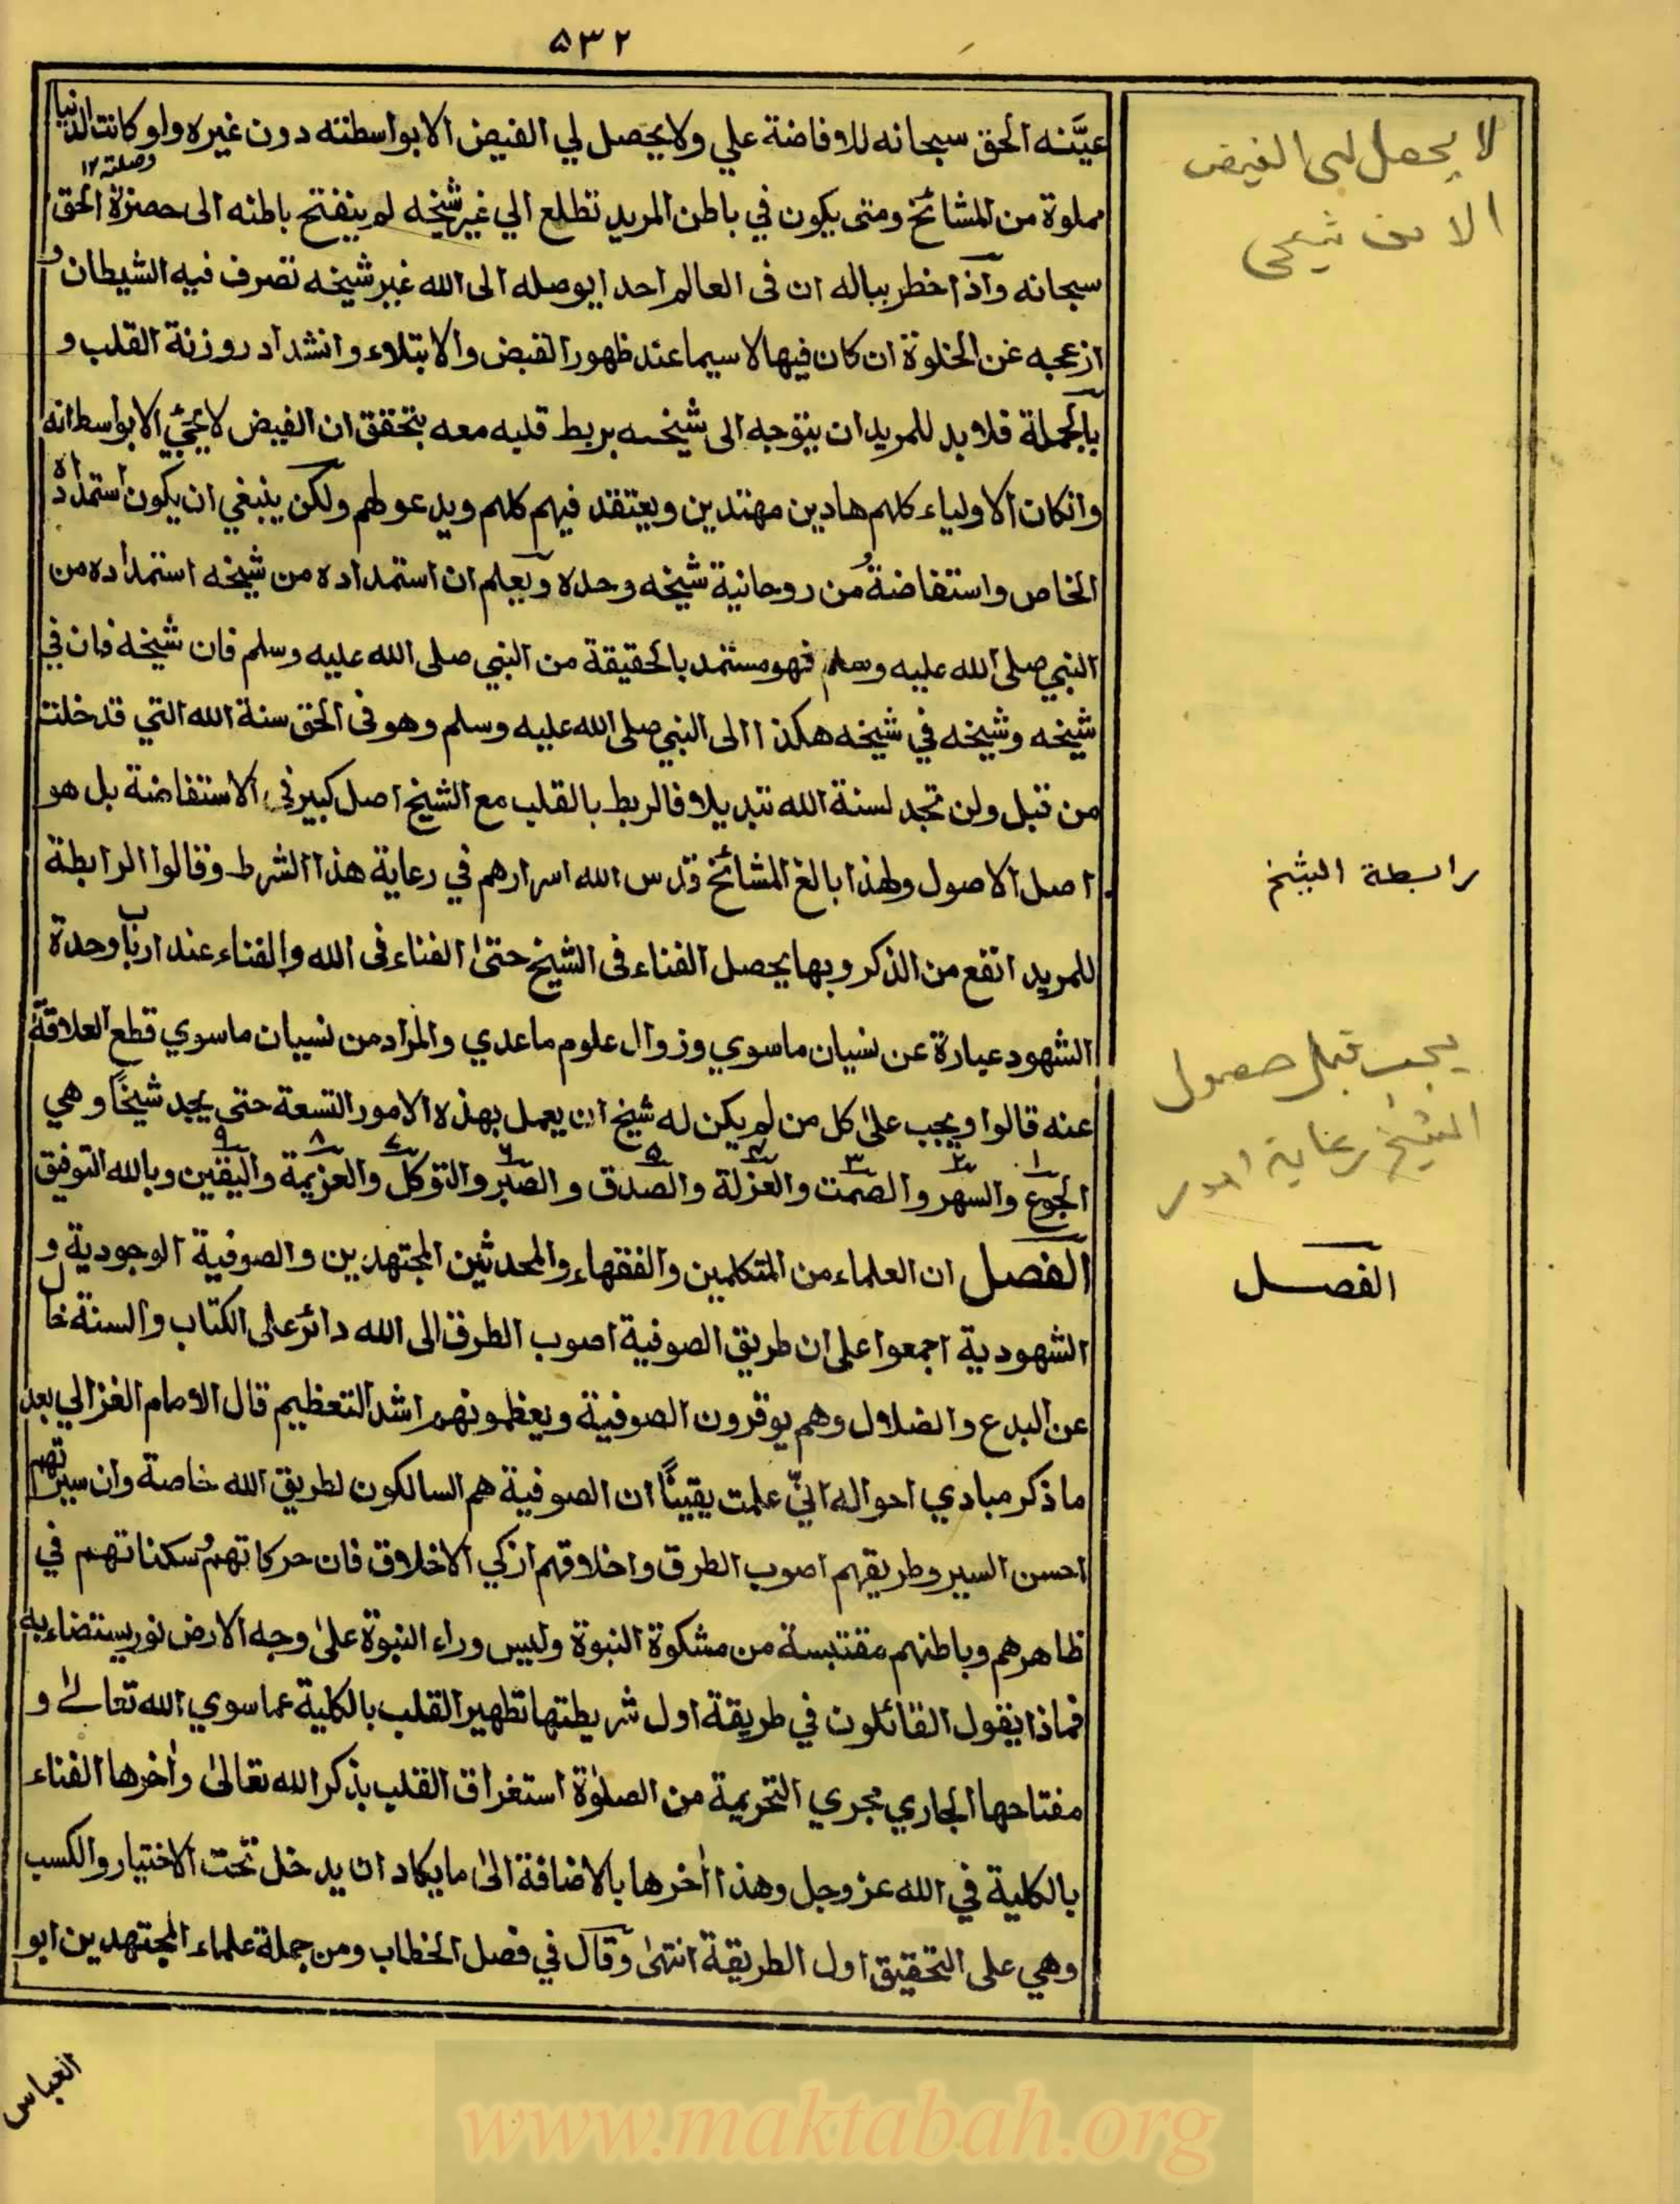 ۵۳۲
عيَّنه الحق سبحانه للافاضة علي ولا يحصل لي الفيض الا بواسطته دون غيره ولو كانت الدنيا
وصلته ١٢
مملوة من المشائخ ومتى يكون في باطن المريد تطلع الي غير شيخه لم ينفتح باطنه الى حضرة الحق
سبحانه وآذا خطر بباله ان فى العالم احدا يوصله الى الله غير شيخه تصرف فيه الشيطان و
ازعجه عن الخلوة ان كان فيها لا سيما عند ظهور القبض والابتلاء وانشداد روزنة القلب و
بالجملة فلا بد للمريد ان يتوجه الى شيخه بربط قلبه معه يتحقق ان الفيض لا يجيئ الا بواسطانه
وانكان الاولياء كلهم هادين مهتدين ويعتقد فيهم كلهم ويدعو لهم ولكن ينبغي ان يكون استمداده
الخاص واستفاضتهُ من روحانية شيخه وحده ويعلم ان استمداده من شيخه استمداده من
النبي صلى الله عليه وسلم فهو مستمد بالحقيقة من النبي صلى الله عليه وسلم فان شيخه فان في
شيخه وشيخه في شيخه هكذا الى النبي صلى الله عليه وسلم وهو فى الحق سنة الله التي قد خلت
من قبل ولن تجد لسنة الله تبديلا فالربط بالقلب مع الشيخ اصل كبير في الاستفاضة بل هو
اصل الاصول ولهذا بالغ المشائخ قدس الله اسرارهم في رعاية هذا الشرط وقالوا الرابطة
للمريد انفع من الذكر وبها يحصل الفناء فى الشيخ حتىٰ الفناء فى الله والفناء عند ارباب وحدة
الشهود عبارة عن نسيان ماسوي وزوال علوم ماعدي والمراد من نسيان ماسوي قطع العلاقة
عنه قالوا ويجب علىٰ كل من لم يكن له شيخ ان يعمل بهذه الامور التسعة حتى يجد شيخًا وهي
١ ٢ ٣ ٤ ٥ ٦ ٧ ٨ ٩
الجوع والسهر والصمت والعزلة والصدق والصبر والتوكل والعزيمة واليقين وبالله التوفيق
الفصل ان العلماء من المتكلمين والفقهاء والمحدثين المجتهدين والصوفية الوجودية و
الشهودية اجمعوا على ان طريق الصوفية اصوب الطرق الى الله دائر على الكتاب والسنة خال
عن البدع والضلال وهم يوقرون الصوفية ويعظمونهم اشد التعظيم قال الامام الغزالي بعد
ما ذكر مبادي احواله انيّ علمت يقينًا ان الصوفية هم السالكون لطريق الله خاصة وان سيرتهم
احسن السير وطريقهم اصوب الطرق واخلاقهم ازكي الاخلاق فان حركاتهم وسكناتهم في
ظاهرهم وباطنهم مقتبسة من مشكوة النبوة وليس وراء النبوة علىٰ وجه الارض نور يستضاء به
فماذا يقول القائلون في طريقة اول شريطتها تطهير القلب بالكلية عما سوي الله تعالىٰ و
مفتاحها الجاري مجري التحريمة من الصلوٰة استغراق القلب بذكر الله تعالىٰ واٰخرها الفناء
بالكلية في الله عز وجل وهذا اٰخرها بالاضافة الىٰ ما يكاد ان يدخل تحت الاختيار والكسب
وهي على التحقيق اول الطريقة انتهىٰ وقال في فصل الخطاب ومن جملة علماء المجتهدين ابو
العباس
لا يحصل لى الفيض
الا من شيخى
رابطة الشيخ
يجب قبل حصول
الشيخ رعاية امور
الفصل
www.maktabah.org